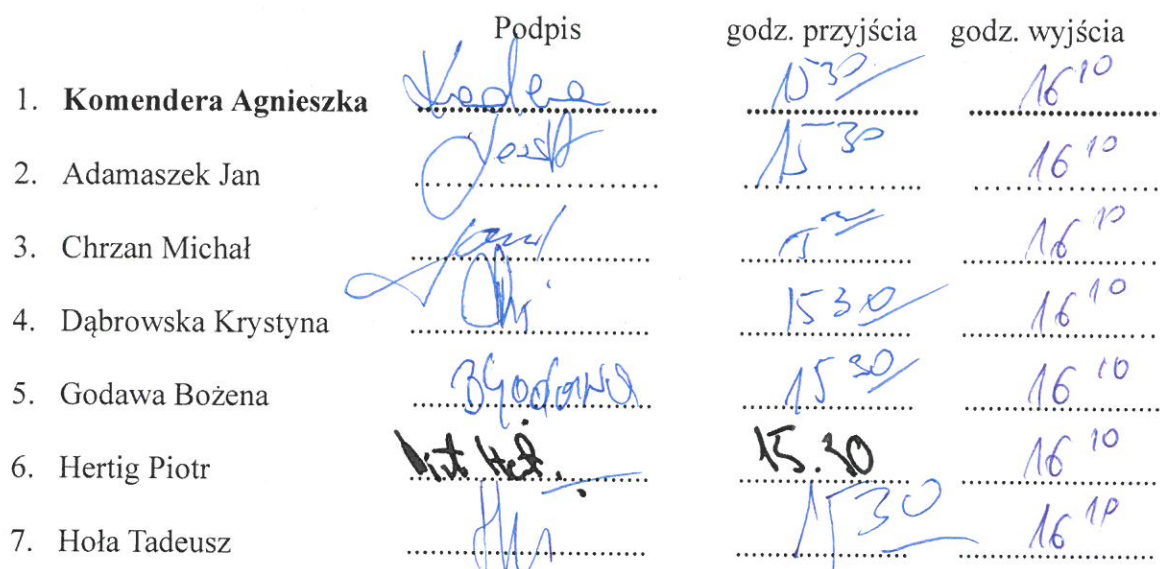 Podpis godz. przyjścia godz. wyjścia
1. Komendera Agnieszka 15 30 16 10
2. Adamaszek Jan 15 30 16 10
3. Chrzan Michał 16 10
4. Dąbrowska Krystyna 15 30 16 10
5. Godawa Bożena BGodawa 15 30 16 10
6. Hertig Piotr 15.30 16 10
7. Hoła Tadeusz 15 30 16 10